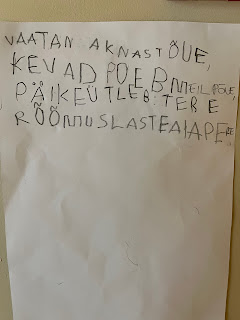 VAATAN AKNAST ÕUE,
KEVAD POEB MEIL PÕUE,
PÄIKE ÜTLEB: TERE
RÕÕMUS LASTEAIAPERE